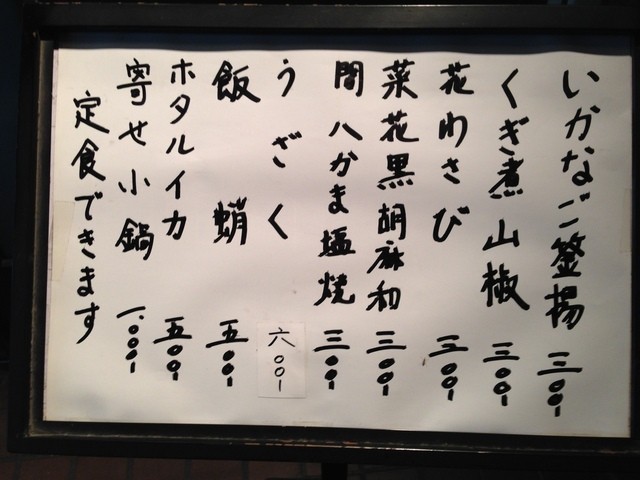 いかなご釜揚 三〇〇ー
くぎ煮山椒 三〇〇ー
花わさび 三〇〇ー
菜花黒胡麻和 三〇〇ー
間八かま塩焼 三〇〇ー
うざく 六〇〇ー
飯蛸 五〇〇ー
ホタルイカ 五〇〇ー
寄せ小鍋 一.〇〇〇ー
定食できます